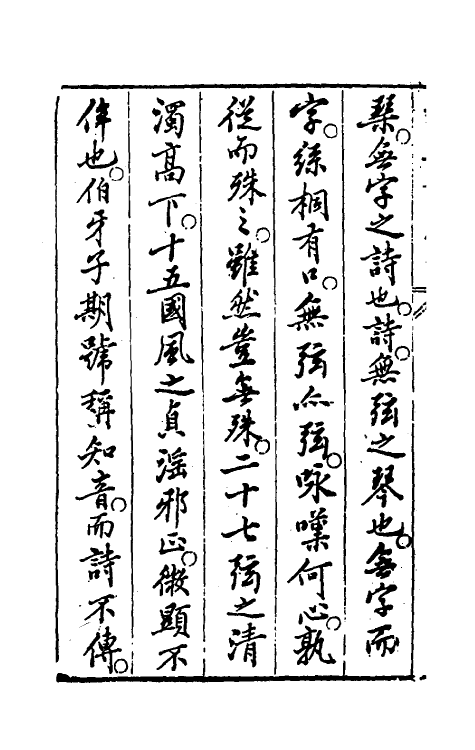 琹。無字之詩也。詩。無弦之琴也。無字而
字。絲桐有口。無弦而弦。咏嘆何心。孰
從而殊之。雖然豈無殊。二十七弦之清
濁高下。十五國風之貞滛邪正。微顯不
侔也。伯牙子期號稱知音。而詩不傳。